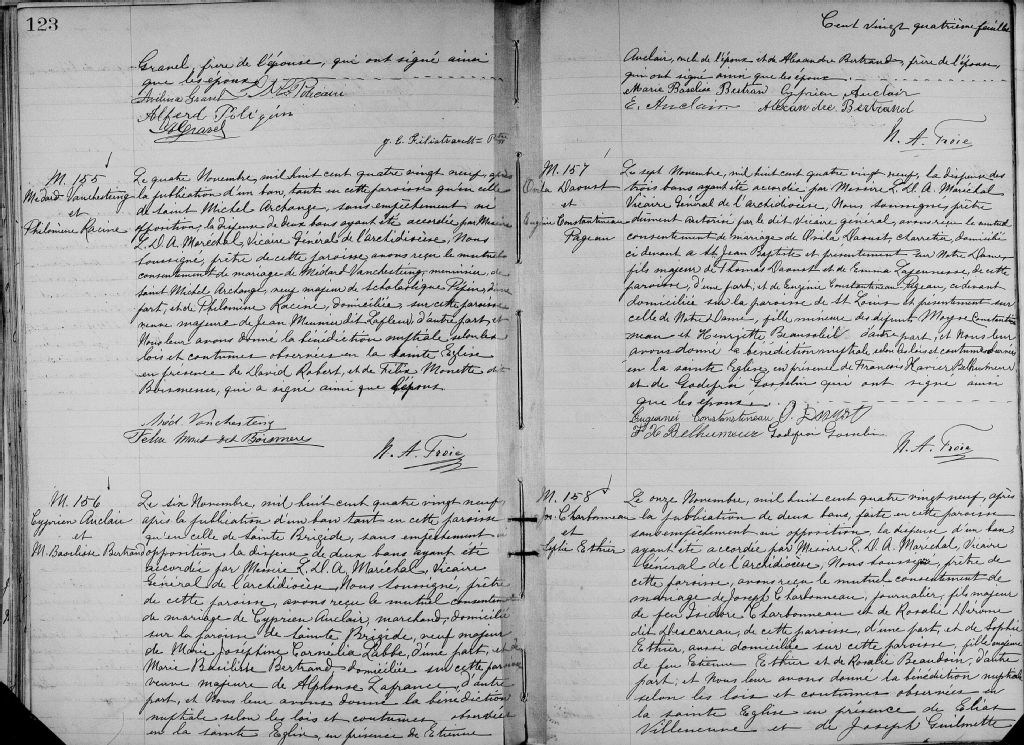 123
Gravel, frere de l'épouse, qui ont signé ainsi
que les époux
Avilina Gravel
Alferd Poliquin
Gravel
Ptre
M. 155
Médard Vanchesteing
et
Philomène Racine
Le quatre Novembre, mil huit cent quatre vingt neuf, après
la publication d'un ban, tant en cette paroisse qu'en celle
de Saint Michel Archange, sans empêchement ni
opposition, la dispense de deux bans ayant été accordée par Messire
L. D. A. Maréchal, Vicaire Général de l'archidiocèse, Nous
soussigné, prêtre de cette paroisse, avons reçu le mutuel
consentement de mariage de Médard Vanchesteing, menuisier, de
Saint Michel Archange, veuf majeur de Scholastique Pépin, d'une
part, et de Philomène Racine, domiciliée sur cette paroisse
veuve majeure de Jean Meunier dit Lafleur, d'autre part, et
Nous leur avons donné la bénédiction nuptiale selon les
lois et coutumes observées en la Sainte Eglise
en présence de David Robert, et de Félix Monette dit
Boismenu, qui a signé ainsi que l'époux
Méd Vanchesteing
Felix dit
N. A. Troie
M. 156
Cyprien Auclair
et
M. Basilisse Bertrand
Le six Novembre, mil huit cent quatre vingt neuf,
après la publication d'un ban tant en cette paroisse
qu'en celle de Sainte Brigide, sans empêchement ni
opposition la dispense de deux bans ayant été
accordée par Messire L. D. A. Maréchal, Vicaire
Général de l'archidiocèse Nous soussigné, prêtre
de cette paroisse, avons reçu le mutuel consentement
de mariage de Cyprien Auclair, marchand, domicilié
sur la paroisse de Sainte Brigide, veuf majeur
de Marie Josephine Cornelia Labbé, d'une part, et de
Marie Basilisse Bertrand domiciliée sur cette paroisse
veuve majeure de Alphonse Lafrance, d'autre
part, et Nous leur avons donné la bénédiction
nuptiale selon les lois et coutumes observées
en la sainte Eglise, en présence de Etienne
Cent vingt quatrième feuillet
Auclair, de l'époux et de Alexandre Bertrand, frère de l'épouse,
qui ont signé ainsi que les époux.
Marie Basilise Bertran Cyprien Auclair
E. Auclair Alexandre Bertrand
N. A. Troie
M. 157
Osila Daoust
et
Eugénie Constantineau
Pageau
Le sept Novembre, mil huit cent quatre vingt neuf, la dispense des
trois bans ayant été accordée par Messire L. D. A. Maréchal
Vicaire Général de l'archidiocèse, Nous soussigné, prêtre
dûment autorisé par le dit Vicaire général, avons reçu le mutuel
consentement de mariage de Osila Daoust, charretier, domicilié
ci devant a St Jean Baptiste et présentement sur Notre Dame,
fils majeur de Thomas Daoust et de Emma Lajeunesse, de cette
paroisse, d'une part, et de Eugénie Constantineau Pageau, ci devant
domiciliée sur la paroisse de St Louis et présentement sur
celle de Notre Dame, fille mineure des défunts Moyse Constanti
neau et Henriette Beausoleil d'autre part, et Nous leur
avons donné la bénédiction nuptiale selon les lois et coutumes observées
en la sainte Eglise, en présence de François Xavier Belhumeur
et de Godefroi Gosselin qui ont signé ainsi
que les époux.
Eugeanei Constanstineau O. Daoust
F X Belhumeur Godefroi Gosselin
N. A. Troie
M. 158
Jos. Charbonneau
et
Sophie Ethier
Le onze Novembre, mil huit cent quatre vingt neuf, après
la publication de deux bans, faite en cette paroisse
sans empêchement ni opposition la dispense d'un ban
ayant été accordée par Messire L. D. A. Maréchal, Vicaire
Général de l'archidiocèse, Nous soussigné, prêtre de
cette paroisse, avons reçu le mutuel consentement de
mariage de Joseph Charbonneau, journalier, fils majeur
de feu Isidore Charbonneau et de Rosalie Dérome
dit Descareau, de cette paroisse, d'une part, et de Sophie
Ethier, aussi domiciliée sur cette paroisse, fille majeure
de feu Etienne Ethier et de Rosalie Beaudoin, d'autre
part; et Nous leur avons donné la bénédiction nuptiale
selon les lois et coutumes observées en
la sainte Eglise en présence de Elias
Villeneuve et de Joseph Guilmette